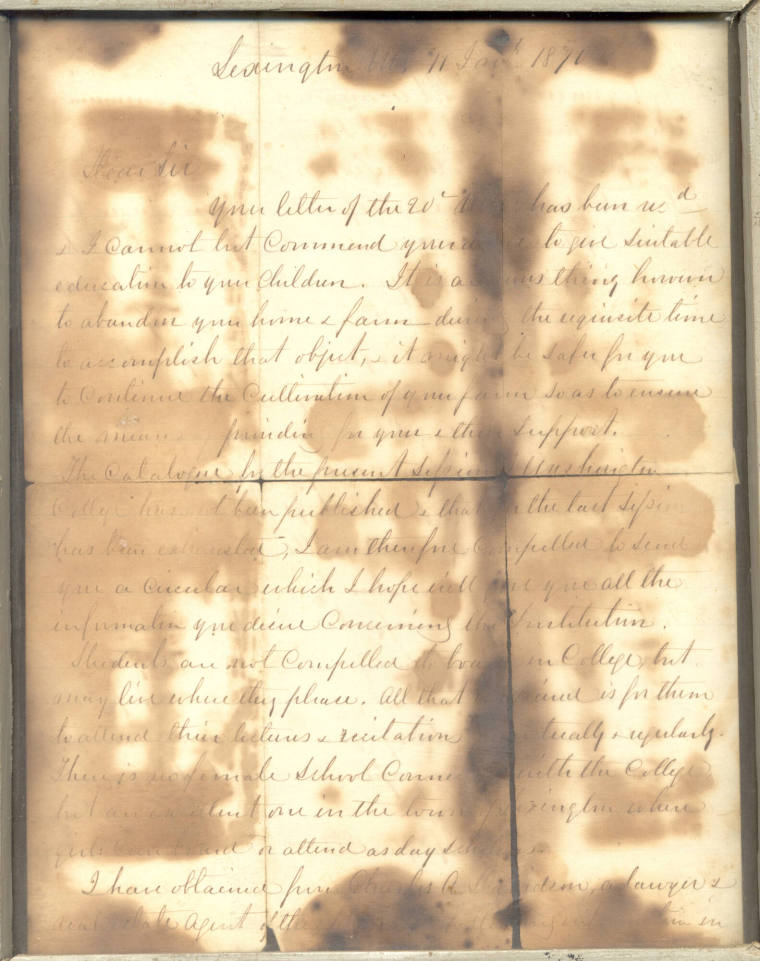 Lexington Va 1870
Dear Sir
Your letter of the 20th has been recd
& I cannot but commend your to give suitable
education to your children. It is a thing however
to abandon your home & farm during the requisite time
to accomplish that object, & it might be safer for you
to continue the cultivation of your farm so as to ensure
the means of providing for your & their support.
The Catalogue for the present Session of Washington
College has not been published & that for the last Session
has been exhausted, I am therefore compelled to send
you a circular which I hope will give you all the
information you desire concerning the Institution.
Students are not compelled to board in College, but
may live where they please. All that required is for them
to attend their lectures & recitation punctually & regularly.
There is no female School connected with the College
but an excellent one in the town of Lexington where
girls can board or attend as day scholars.
I have obtained from Charles A. Davidson, a lawyer &
real estate agent of the in